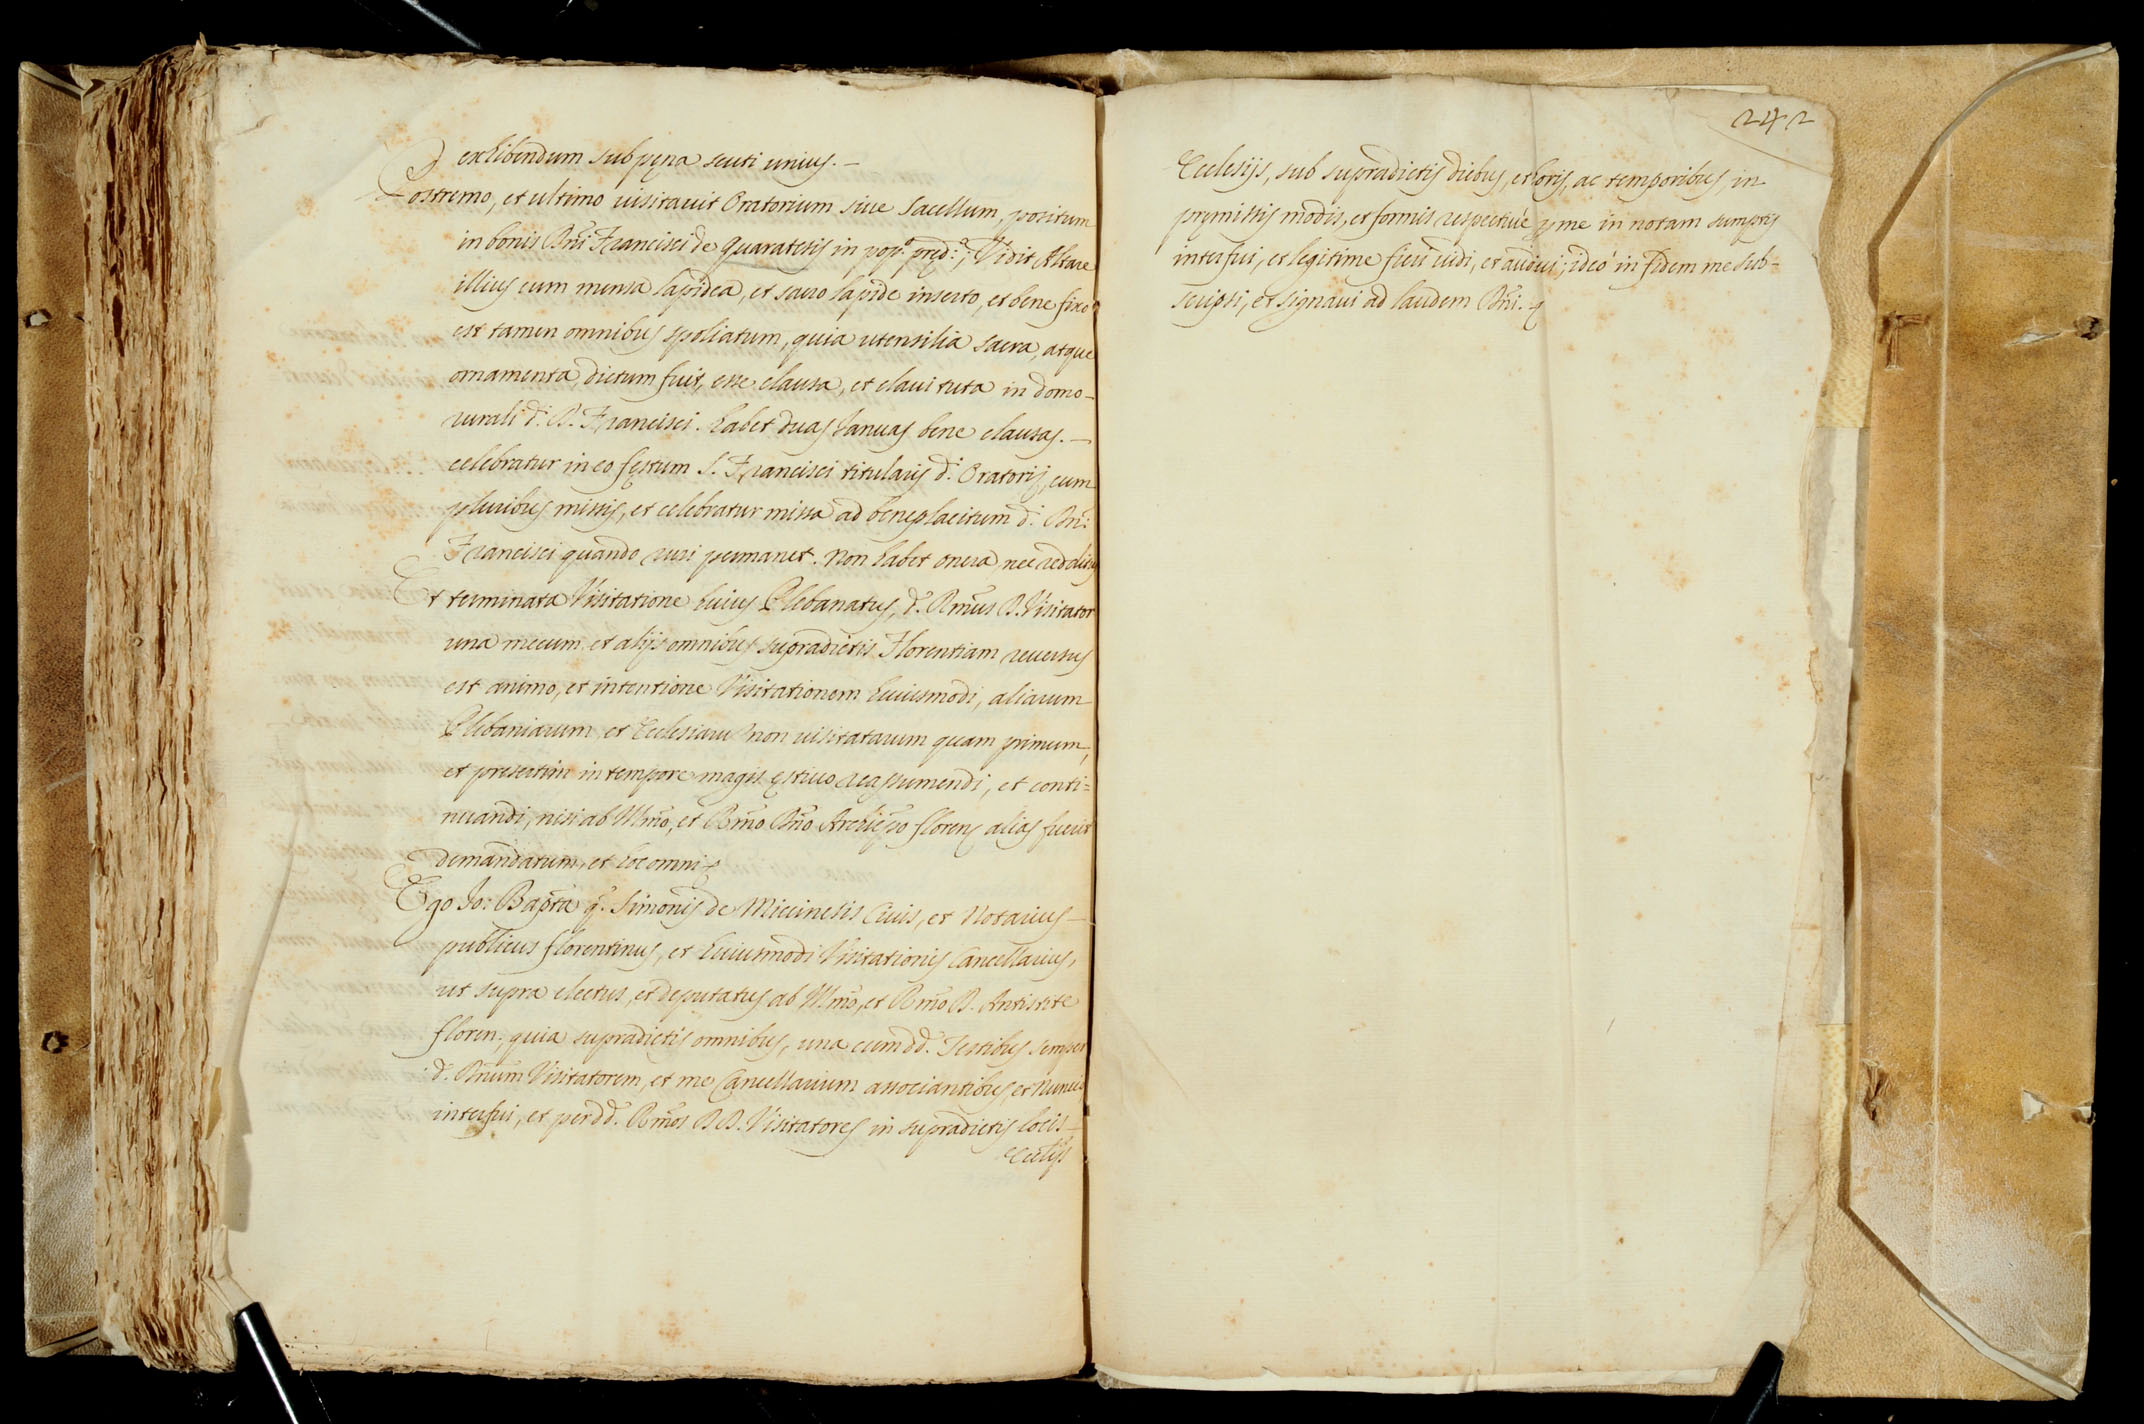 exhibendum sub pęna scuti unius.—
Postremo, et ultimo uisitauit Oratorium siue Sacellum, positum
in bonis Dn̄i Francisci de Quaratesis in popᵒ. pręd.ᵒ; Vidit Altare
illius cum mensa lapidea, et sacro lapide inserto, et bene fixo
est tamen omnibus spoliatum, quia utensilia sacra, atque
ornamenta dictum fuit, esse clausa, et claui tuta in domo
rurali d.ⁱ D. Francisci. habet duas Ianuas bene clausas.—
celebratur in eo festum S. Francisci titularis d.ⁱ Oratorij, cum
pluribus missis, et celebratur missa ad beneplacitum d.ⁱ Dn̄i
Francisci quando ruri permanet. Non habet onera, nec redditus
Et terminata Visitatione huius Plebanatus, d.ˢ Rm̄us D. Visitator
una mecum et alijs omnibus supradictis Florentiam reuersus
est animo, et intentione Visitationem huiusmodi, aliarum
Plebaniarum, et Ecclesiarū non uisitatarum quam primum,
et presertim in tempore magis ęstiuo reassumendi, et conti=
nuandi, nisi ab Illm̄o, et Rm̄o Dn̄o Archiep̄o floren̄ alias fuerit
demandatum, et hoc omni
Ego Jo: Bap̄ta q. Simonis de Miccinesis Ciuis, et Notarius
publicus florentinus, et huiusmodi Visitationis Cancellarius,
ut supra electus, et deputatus ab Illm̄o, et Rm̄o D. Antistite
floren., quia supradictis omnibus, una cum dd. Testibus semper
d. Dn̄um Visitatorem, et me Cancellarium associantibus, et Nuncio
interfui, et per dd. Rm̄os DD. Visitatores in supradictis locis
Ecclijs
242
Ecclesijs, sub supradictis diebus, et horis, ac temporibus, in
pręmissis modis, et formis respectiué per me in notam sumptis
interfui, et legitime fieri uidi, et audiui; ideó in fidem me sub=
scripsi, et signaui ad laudem Dn̄i.